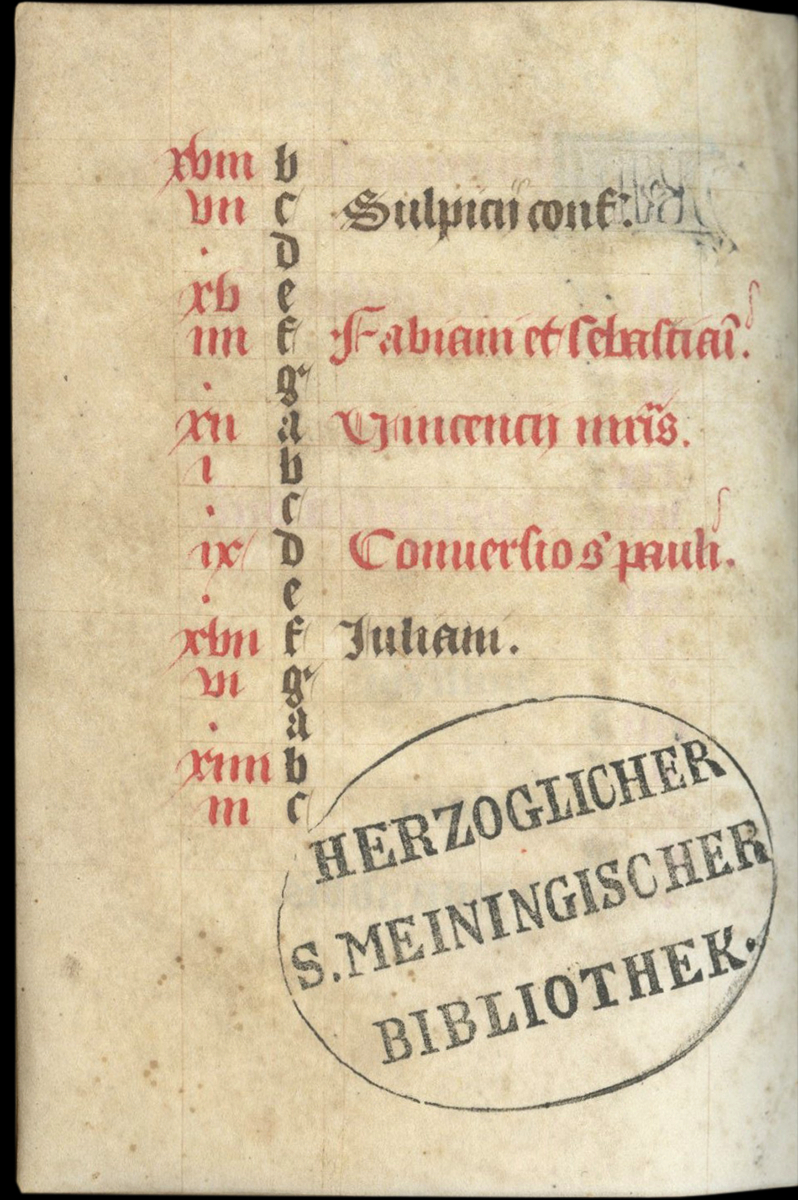 xviii b
vii c Sulpicij conf.
. d
xv e
iiii f Fabiani et sebastiai.
. g
xii a Vincencij mris.
i b
. c
ix d Conuersio s pauli.
. e
xvii f Iuliani.
vi g
. a
xiiii b
iii c
HERZOGLICHER
S. MEININGISCHER
BIBLIOTHEK.